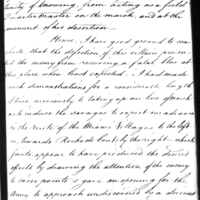 tunity of knowing, from acting as a field
Quartermaster on the march, and at the
moment of his desertion —
Hence, I have good ground to con-
clude that the defection of this villain preven-
ted the enemy from receiving a fatal blow at
this place when least expected. — I had made
such demonstrations for a considerable length
of time previously to taking up our line of march
as to induce the savages to expect an advance
in the route of the Miami Villages to the left
or, towards Roche de bout by the right — which
feints appear to have produced the desired
effects by drawing the attention of the enemy
to those points & gave an opening for the
Army to approach undiscovered by a devious